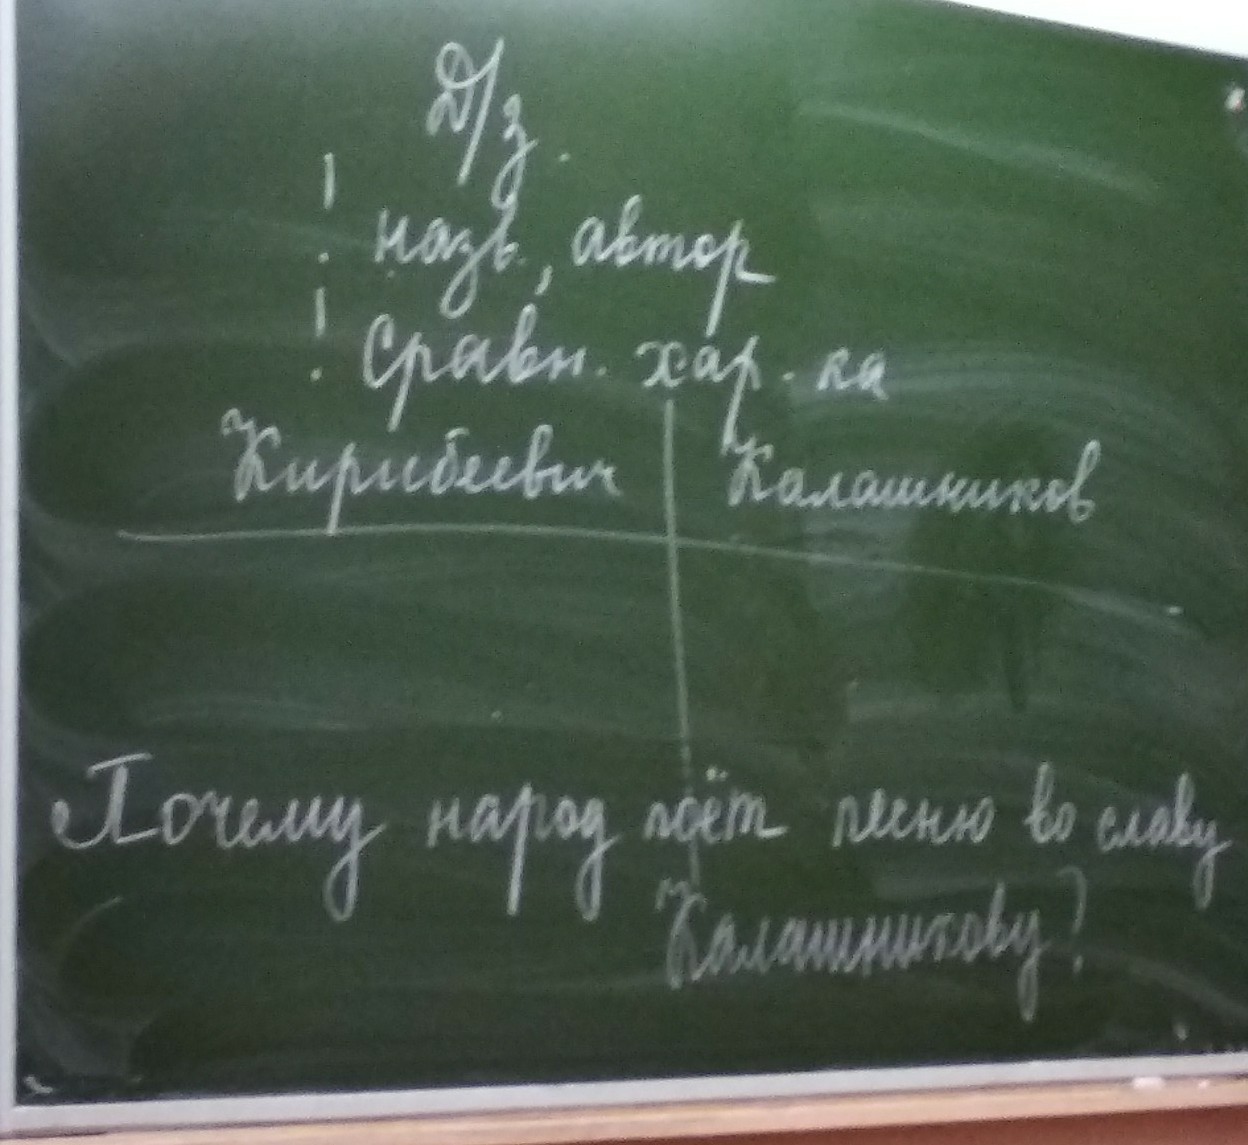 Д/з.
! назв., автор
! Сравн. хар-ка
Кирибеевич Калашников
Почему народ поёт песню во славу
Калашникову?